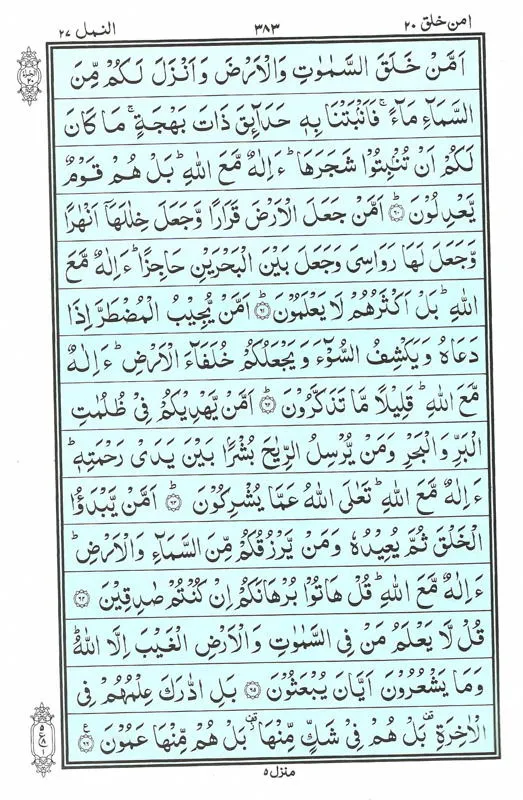 امن خلق ٢٠ ٣٨٣ النمل ٢٧
اَمَّنْ خَلَقَ السَّمٰوٰتِ وَالْاَرْضَ وَاَنْزَلَ لَكُمْ مِّنَ
السَّمَآءِ مَآءً ۚ فَاَنْۢبَتْنَا بِهٖ حَدَآئِقَ ذَاتَ بَهْجَةٍ ۚ مَا كَانَ
لَكُمْ اَنْ تُنْۢبِتُوْا شَجَرَهَا ؕ ءَاِلٰهٌ مَّعَ اللّٰهِ ؕ بَلْ هُمْ قَوْمٌ
يَّعْدِلُوْنَ ؕ﴿٦٠﴾ اَمَّنْ جَعَلَ الْاَرْضَ قَرَارًا وَّجَعَلَ خِلٰلَهَاۤ اَنْهٰرًا
وَّجَعَلَ لَهَا رَوَاسِىَ وَجَعَلَ بَيْنَ الْبَحْرَيْنِ حَاجِزًا ؕ ءَاِلٰهٌ مَّعَ
اللّٰهِ ؕ بَلْ اَكْثَرُهُمْ لَا يَعْلَمُوْنَ ؕ﴿٦١﴾ اَمَّنْ يُّجِيْبُ الْمُضْطَرَّ اِذَا
دَعَاهُ وَيَكْشِفُ السُّوْٓءَ وَيَجْعَلُكُمْ خُلَفَآءَ الْاَرْضِ ؕ ءَاِلٰهٌ
مَّعَ اللّٰهِ ؕ قَلِيْلًا مَّا تَذَكَّرُوْنَ ؕ﴿٦٢﴾ اَمَّنْ يَّهْدِيْكُمْ فِىْ ظُلُمٰتِ
الْبَرِّ وَالْبَحْرِ وَمَنْ يُّرْسِلُ الرِّيٰحَ بُشْرًۢا بَيْنَ يَدَىْ رَحْمَتِهٖ ؕ
ءَاِلٰهٌ مَّعَ اللّٰهِ ؕ تَعٰلَى اللّٰهُ عَمَّا يُشْرِكُوْنَ ؕ﴿٦٣﴾ اَمَّنْ يَّبْدَؤُا
الْخَلْقَ ثُمَّ يُعِيْدُهٗ وَمَنْ يَّرْزُقُكُمْ مِّنَ السَّمَآءِ وَالْاَرْضِ ؕ
ءَاِلٰهٌ مَّعَ اللّٰهِ ؕ قُلْ هَاتُوْا بُرْهَانَكُمْ اِنْ كُنْتُمْ صٰدِقِيْنَ ﴿٦٤﴾
قُلْ لَّا يَعْلَمُ مَنْ فِى السَّمٰوٰتِ وَالْاَرْضِ الْغَيْبَ اِلَّا اللّٰهُ ؕ
وَمَا يَشْعُرُوْنَ اَيَّانَ يُبْعَثُوْنَ ﴿٦٥﴾ بَلِ ادّٰرَكَ عِلْمُهُمْ فِى
الْاٰخِرَةِ ۟ بَلْ هُمْ فِىْ شَكٍّ مِّنْهَا ۟ بَلْ هُمْ مِّنْهَا عَمُوْنَ ﴿٦٦﴾
منزل ٥